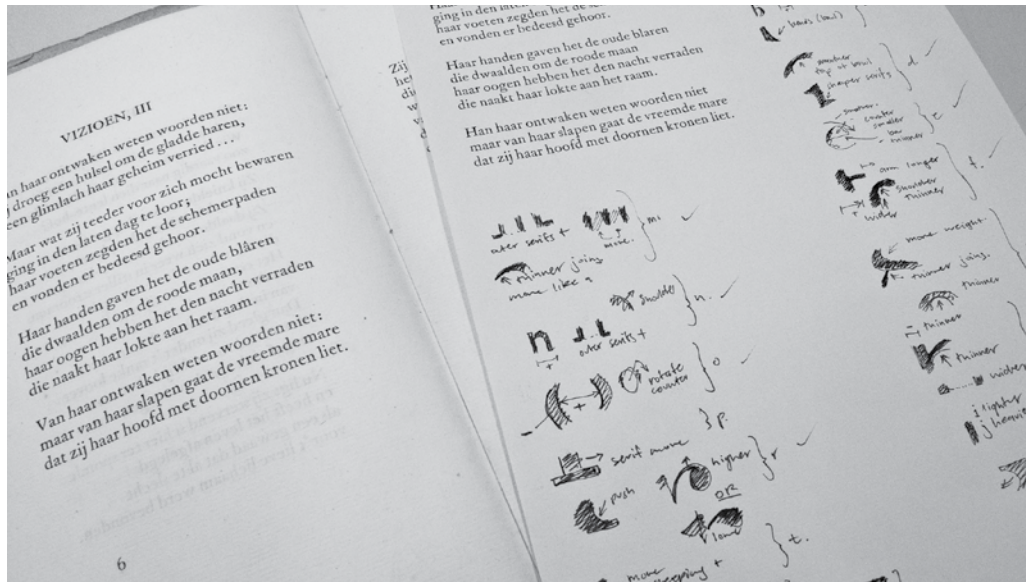 VIZIOEN, III
an haar ontwaken weten woorden niet:
j droeg een hulsel om de gladde haren,
een glimlach haar geheim verried ...
Maar wat zij teeder voor zich mocht bewaren
ging in den laten dag te loor;
haar voeten zegden het de schemerpaden
en vonden er bedeesd gehoor.
Haar handen gaven het de oude blâren
die dwaalden om de roode maan,
haar oogen hebben het den nacht verraden
die naakt haar lokte aan het raam.
Van haar ontwaken weten woorden niet:
maar van haar slapen gaat de vreemde mare
dat zij haar hoofd met doornen kronen liet.
6
Zij
het
ging in den laten
haar voeten zegden het de
en vonden er bedeesd gehoor.
Haar handen gaven het de oude blaren
die dwaalden om de roode maan
haar oogen hebben het den nacht verraden
die naakt haar lokte aan het raam.
Han haar ontwaken weten woorden niet
maar van haar slapen gaat de vreemde mare
dat zij haar hoofd met doornen kronen liet.
outer serifs +
m.
thinner joins
more like n
shoulder
n.
outer serifs +
rotate
counter
o
p.
serif more
push
higher
r
OR
lower
t.
more
(bowl)
smoother
top of bowl
sharper serifs
d.
counter
smaller
bar
thinner
e
arm longer
shoulder
thinner
wider
f.
more weight
thinner joins.
thinner
thinner
thinner
wider
lighter
j